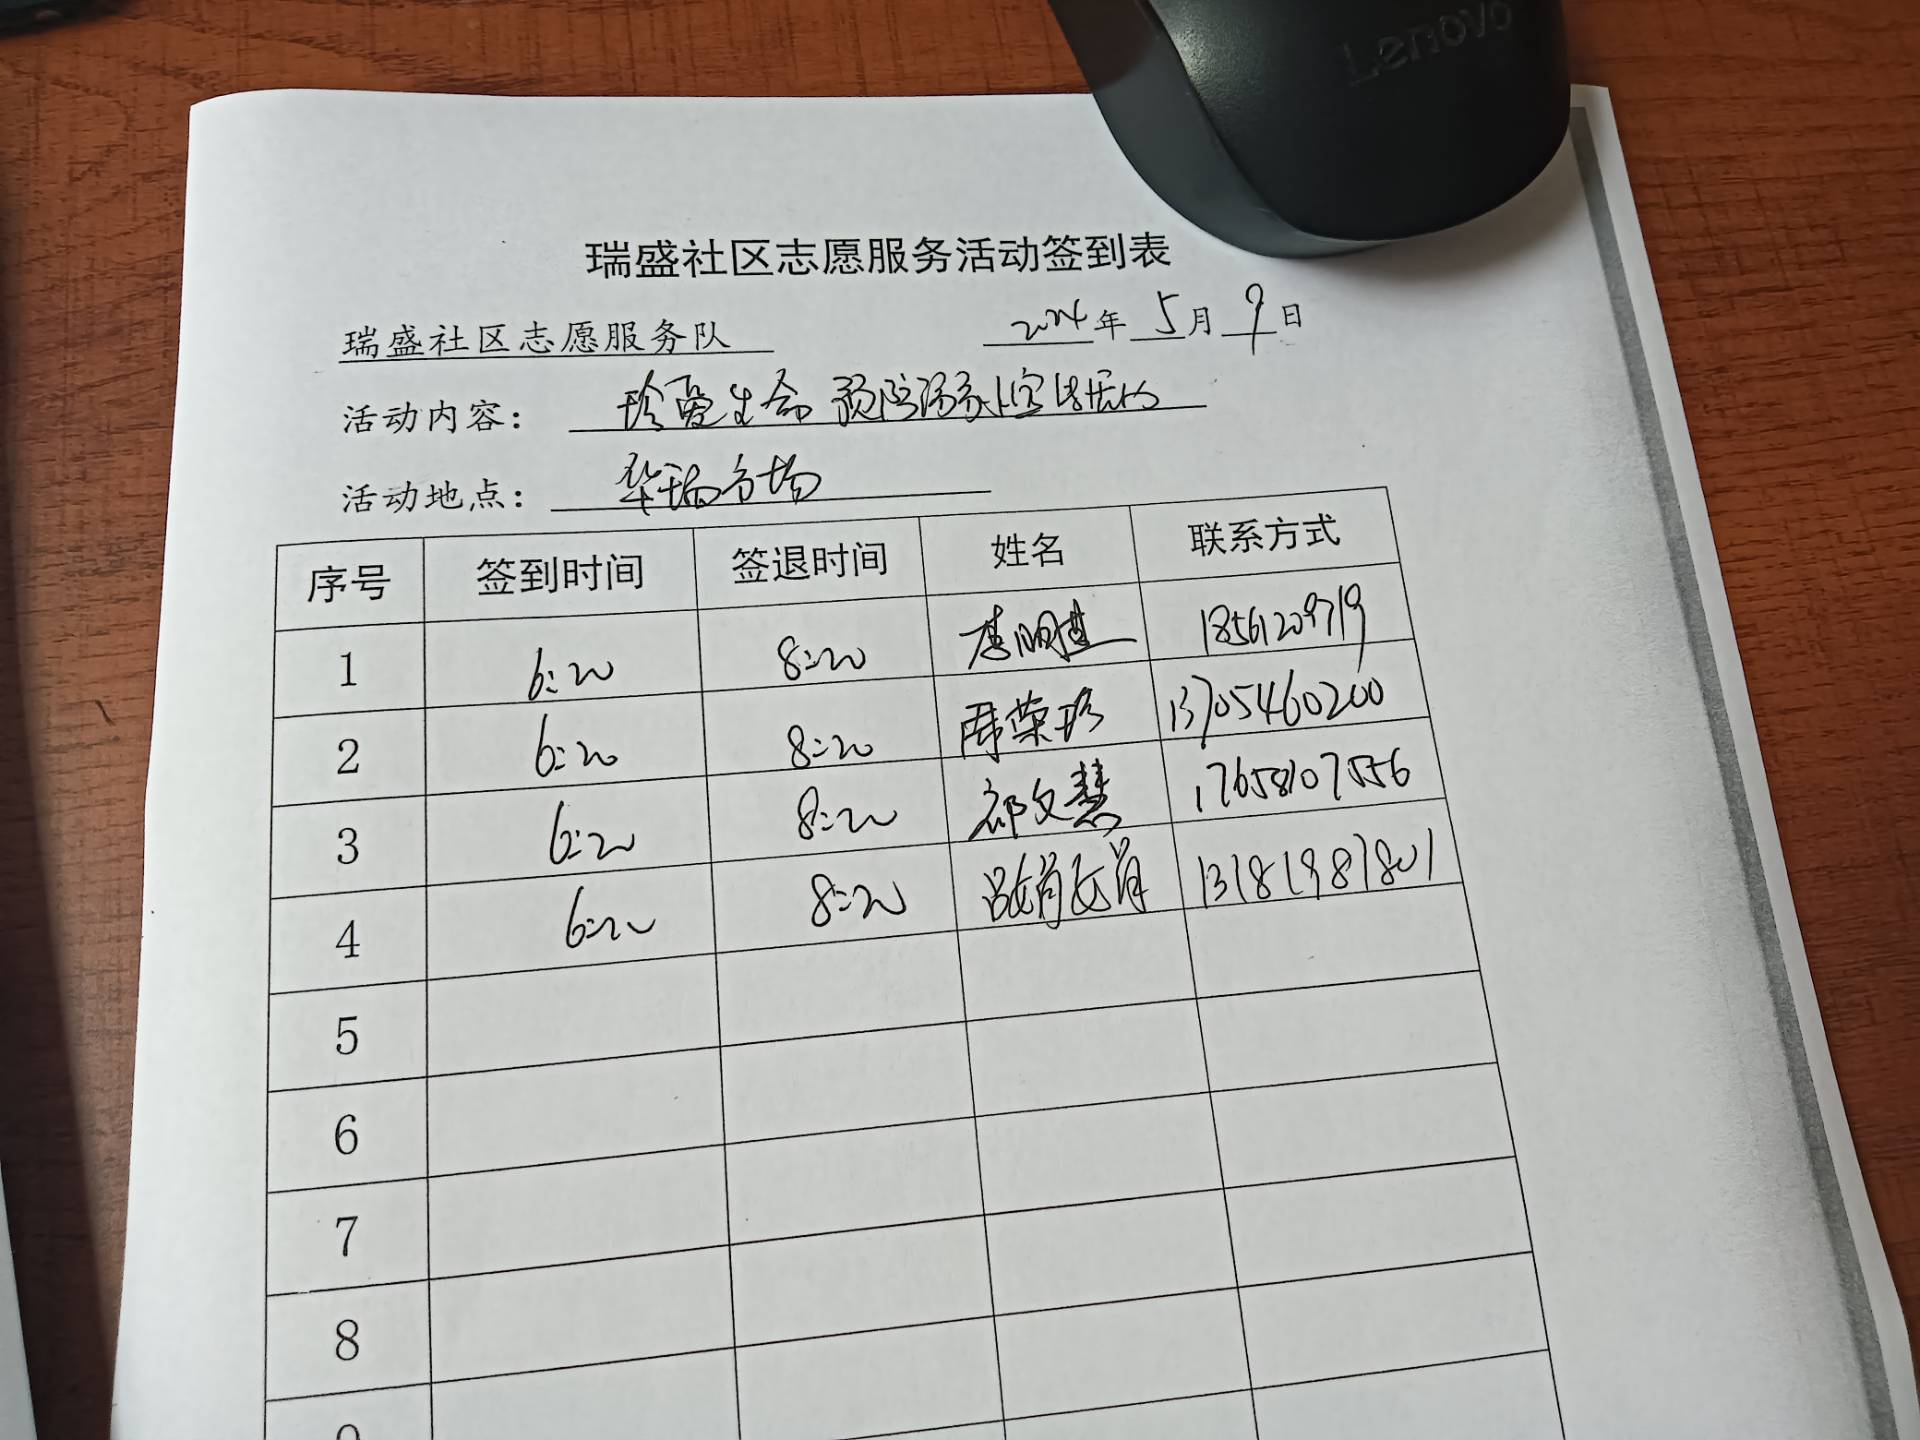 Lenovo
瑞盛社区志愿服务活动签到表
瑞盛社区志愿服务队 2024年 5月 9日
活动内容： 珍爱生命 预防溺水宣传活动
活动地点： 华瑞市场
序号 签到时间 签退时间 姓名 联系方式
1 6:20 8:20 李明 18561209719
2 6:20 8:20 荣珍 13705460200
3 6:20 8:20 祁文慧 17658107556
4 6:20 8:20 吕娟娟 13181981801
5
6
7
8